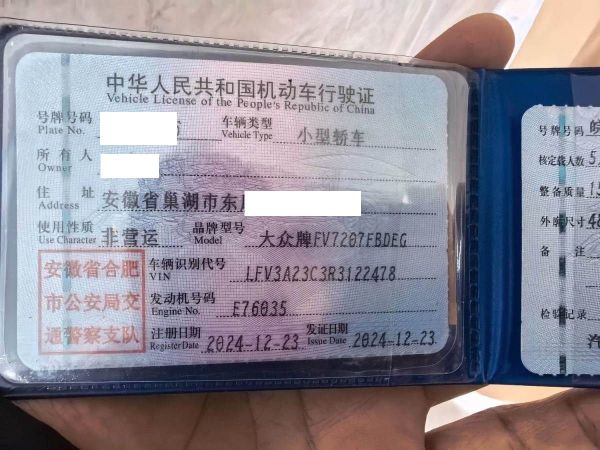 中华人民共和国机动车行驶证
Vehicle License of the People's Republic of China
号牌号码 车辆类型 小型轿车
Plate No. Vehicle Type
所有人
Owner
住址 安徽省巢湖市东
Address
使用性质 非营运 品牌型号 大众牌FV7207FBDEG
Use Character Model
安徽省合肥 车辆识别代号 LFV3A23C3R3122478
VIN
市公安局交 发动机号码 E76035
Engine No.
通警察支队 注册日期 2024-12-23 发证日期 2024-12-23
Register Date Issue Date
号牌号码 皖
核定载人数 5
整备质量 15
外廓尺寸 48
备注
检验记录
汽